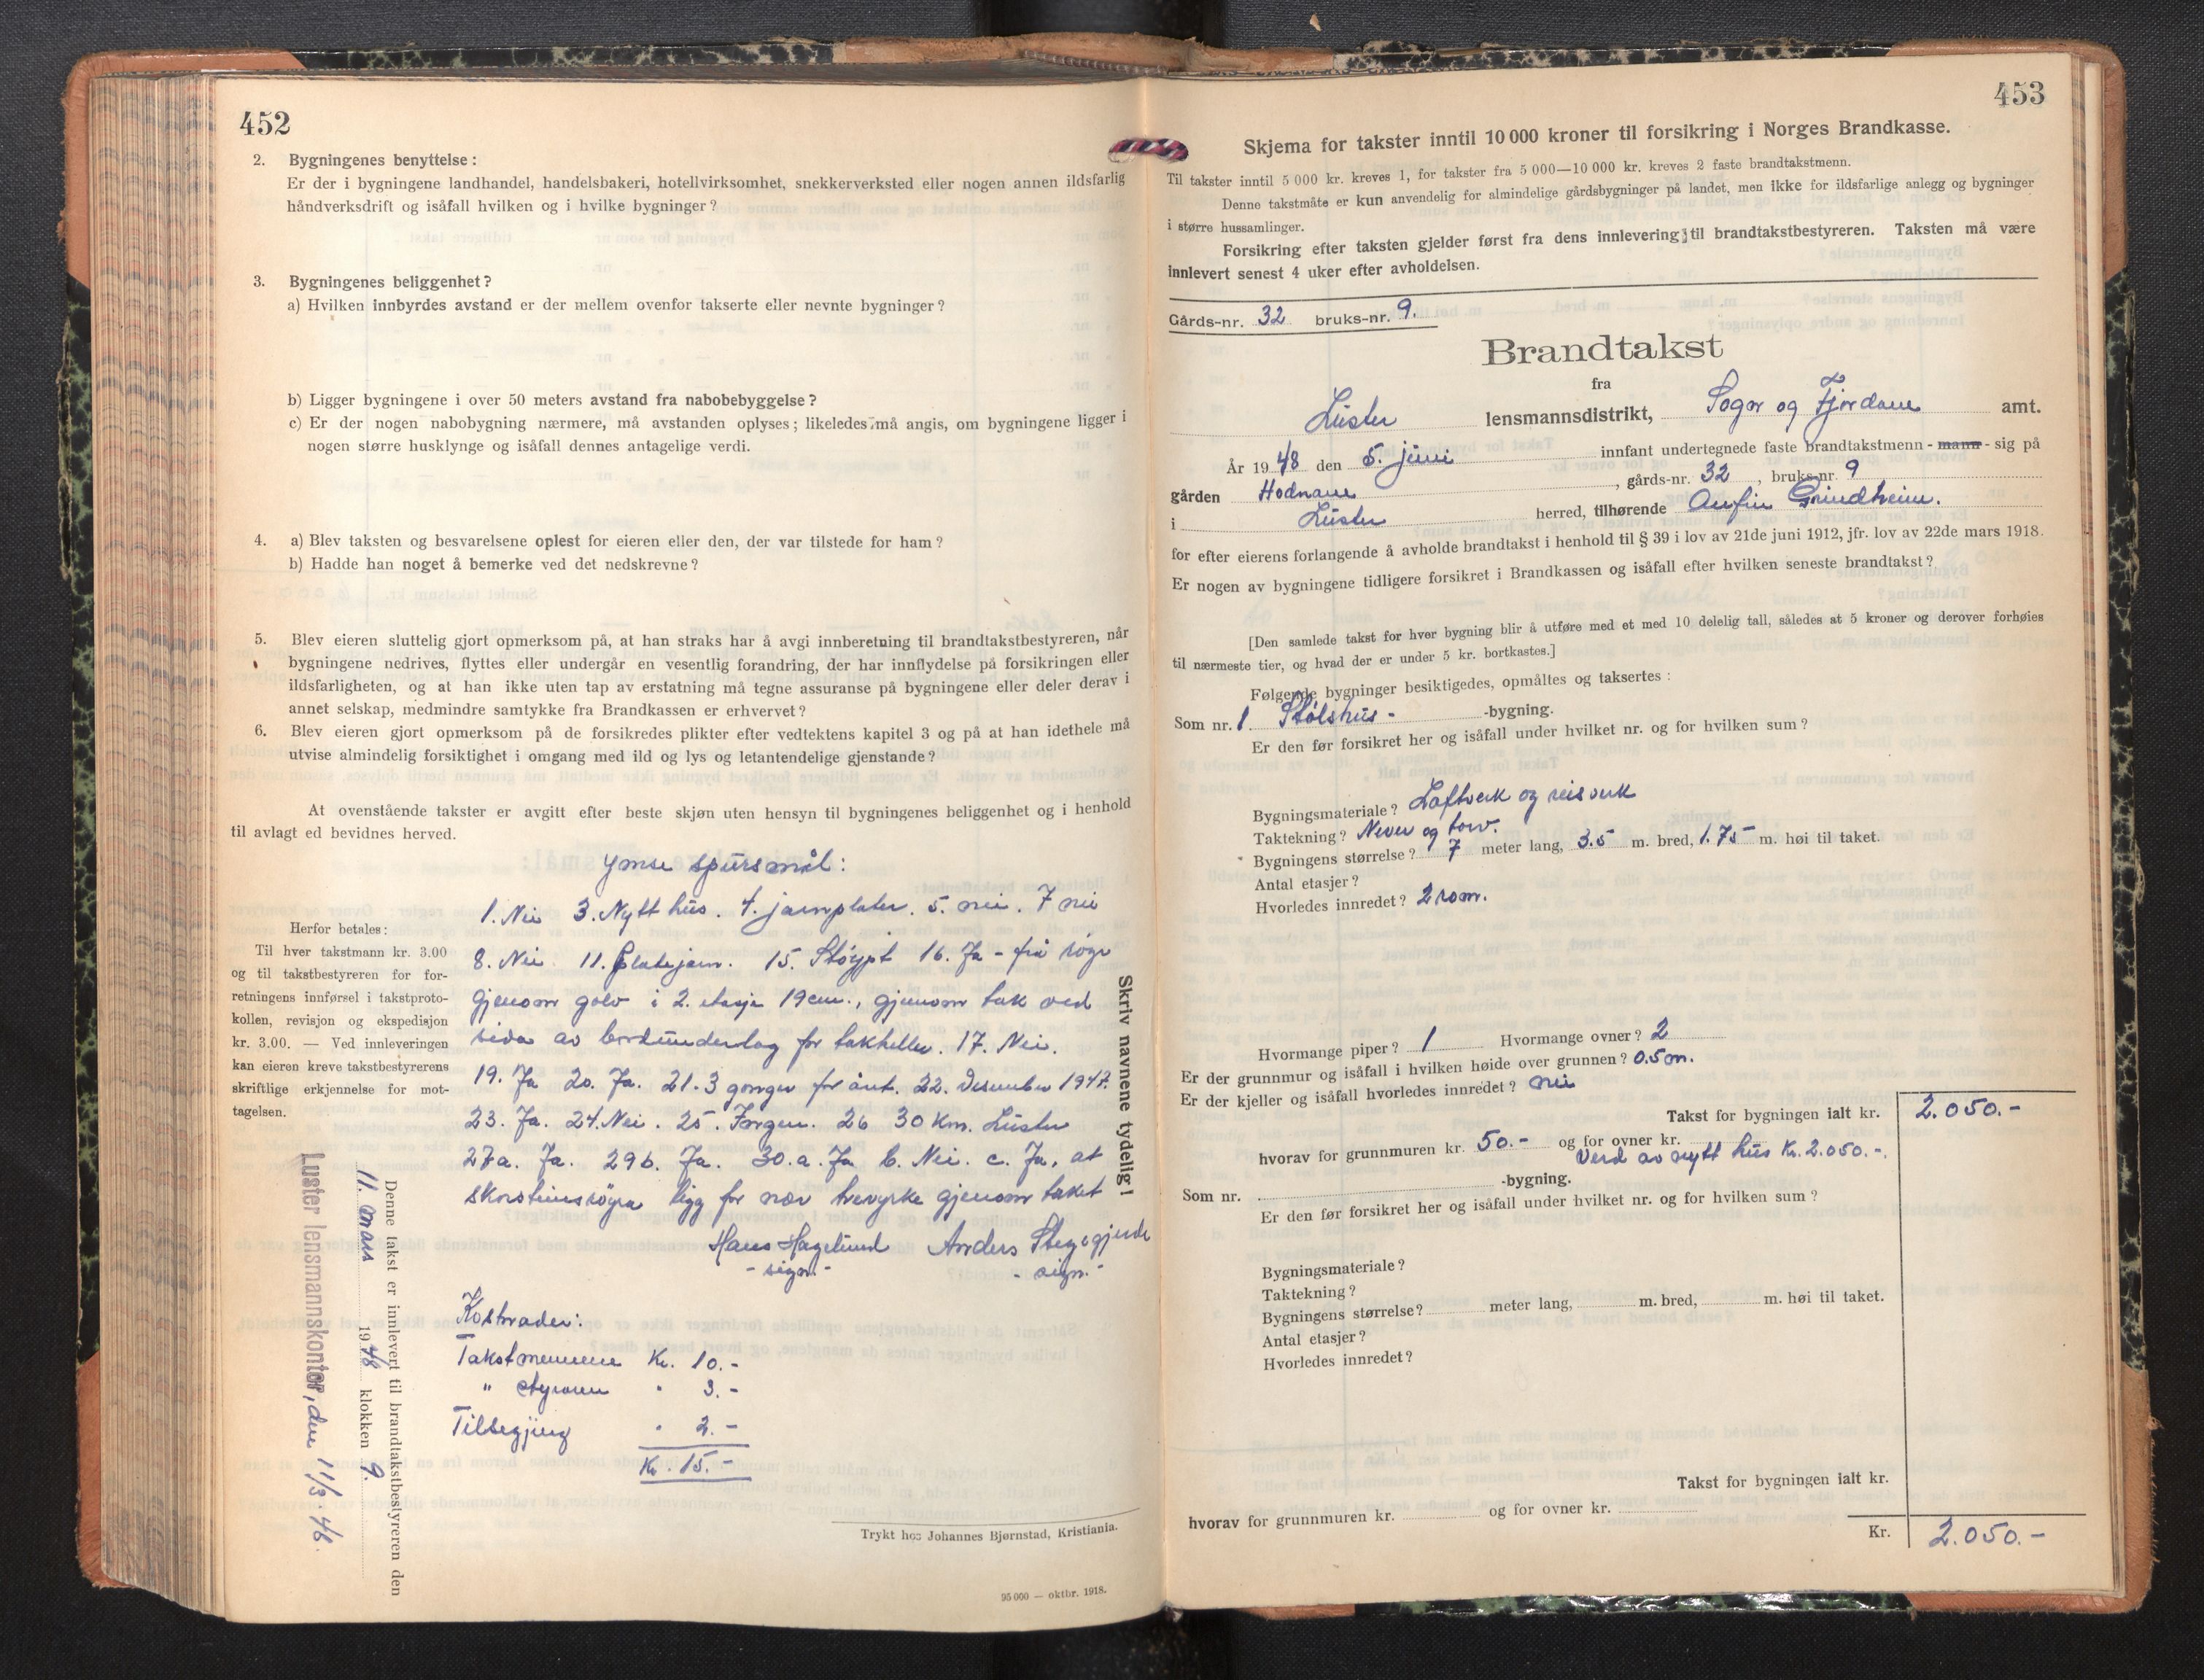 452
2. Bygningenes benyttelse:
Er der i bygningene landhandel, handelsbakeri, hotellvirksomhet, snekkerverksted eller nogen annen ildsfarlig
håndverksdrift og isåfall hvilken og i hvilke bygninger?
3. Bygningenes beliggenhet?
a) Hvilken innbyrdes avstand er der mellem ovenfor takserte eller nevnte bygninger?
b) Ligger bygningene i over 50 meters avstand fra nabobebyggelse?
c) Er der nogen nabobygning nærmere, må avstanden oplyses; likeledes må angis, om bygningene ligger i
nogen større husklynge og isåfall dennes antagelige verdi.
4. a) Blev taksten og besvarelsene oplest for eieren eller den, der var tilstede for ham?
b) Hadde han noget å bemerke ved det nedskrevne?
5. Blev eieren sluttelig gjort opmerksom på, at han straks har å avgi innberetning til brandtakstbestyreren, når
bygningene nedrives, flyttes eller undergår en vesentlig forandring, der har innflydelse på forsikringen eller
ildsfarligheten, og at han ikke uten tap av erstatning må tegne assuranse på bygningene eller deler derav i
annet selskap, medmindre samtykke fra Brandkassen er erhvervet?
6. Blev eieren gjort opmerksom på de forsikredes plikter efter vedtektens kapitel 3 og på at han idethele må
utvise almindelig forsiktighet i omgang med ild og lys og letantendelige gjenstande?
At ovenstående takster er avgitt efter beste skjøn uten hensyn til bygningenes beliggenhet og i henhold
til avlagt ed bevidnes herved.
Ymse spursmål:
1. Nei 3. Nytt hus. 4. jarnplater. 5. nei. 7 nei
8. Nei 11. Platejarn. 15. Støypt 16. Ja - frå røyr
gjenom golv i 2. etasje 19cm., gjenom tak ved
sida av bordunderlag for takheller. 17. Nei.
19. Ja 20. Ja. 21. 3 gonger for året. 22. Desember 1947.
23. Ja. 24. Nei. 25. Jorgen. 26 30 km. Luster
27a. Ja. 29b. Ja. 30.a. Ja b. Nei. c. Ja, at
skorsteinsrøyra ligg for nær treverke gjenom taket
Hans Hagelund Anders Stegegjerde
- sign. - - sign. -
Herfor betales:
Til hver takstmann kr. 3.00
og til takstbestyreren for for-
retningens innførsel i takstproto-
kollen, revisjon og ekspedisjon
kr. 3.00. — Ved innleveringen
kan eieren kreve takstbestyrerens
skriftlige erkjennelse for mot-
tagelsen.
Skriv navnene tydelig!
Denne takst er innlevert til brandtakstbestyreren den
11. mars 1948 klokken 9.
Luster lensmannskontor, den 11/3. 48.
Kostnader:
Takstmennene Kr. 10.-
" styraren " 3.-
" 2.-
Kr. 15.-
Trykt hos Johannes Bjørnstad, Kristiania.
95 000 — oktbr. 1918.
453
Skjema for takster inntil 10 000 kroner til forsikring i Norges Brandkasse.
Til takster inntil 5 000 kr. kreves 1, for takster fra 5 000—10 000 kr. kreves 2 faste brandtakstmenn.
Denne takstmåte er kun anvendelig for almindelige gårdsbygninger på landet, men ikke for ildsfarlige anlegg og bygninger
i større hussamlinger.
Forsikring efter taksten gjelder først fra dens innlevering til brandtakstbestyreren. Taksten må være
innlevert senest 4 uker efter avholdelsen.
Gårds-nr. 32 bruks-nr. 9.
Brandtakst
fra
Luster lensmannsdistrikt, Sogn og Fjordane amt.
År 1948 den 5. juni innfant undertegnede faste brandtakstmenn - mann - sig på
gården Hodnane, gårds-nr. 32, bruks-nr. 9
i Luster herred, tilhørende Anfin Grindheim.
for efter eierens forlangende å avholde brandtakst i henhold til § 39 i lov av 21de juni 1912, jfr. lov av 22de mars 1918.
Er nogen av bygningene tidligere forsikret i Brandkassen og isåfall efter hvilken seneste brandtakst?
[Den samlede takst for hver bygning blir å utføre med et med 10 delelig tall, således at 5 kroner og derover forhøies
til nærmeste tier, og hvad der er under 5 kr. bortkastes.]
Følgende bygninger besiktigedes, opmåltes og taksertes:
Som nr. 1 Stølshus- -bygning.
Er den før forsikret her og isåfall under hvilket nr. og for hvilken sum?
Bygningsmateriale? Laftverk og reisverk
Taktekning? Never og torv.
Bygningens størrelse? 7 meter lang, 3.5 m. bred, 1.75 m. høi til taket.
Antal etasjer?
Hvorledes innredet? 2 rom.
Hvormange piper? 1 Hvormange ovner? 2
Er der grunnmur og isåfall i hvilken høide over grunnen? 0.5 m.
Er der kjeller og isåfall hvorledes innredet? nei
Takst for bygningen ialt kr. 2.050.-
hvorav for grunnmuren kr. 50.- og for ovner kr.
Verd av nytt hus kr. 2.050.-.
Som nr. -bygning.
Er den før forsikret her og isåfall under hvilket nr. og for hvilken sum?
Bygningsmateriale?
Taktekning?
Bygningens størrelse? meter lang, m. bred, m. høi til taket.
Antal etasjer?
Hvorledes innredet?
Takst for bygningen ialt kr.
hvorav for grunnmuren kr. og for ovner kr.
Kr. 2.050.-